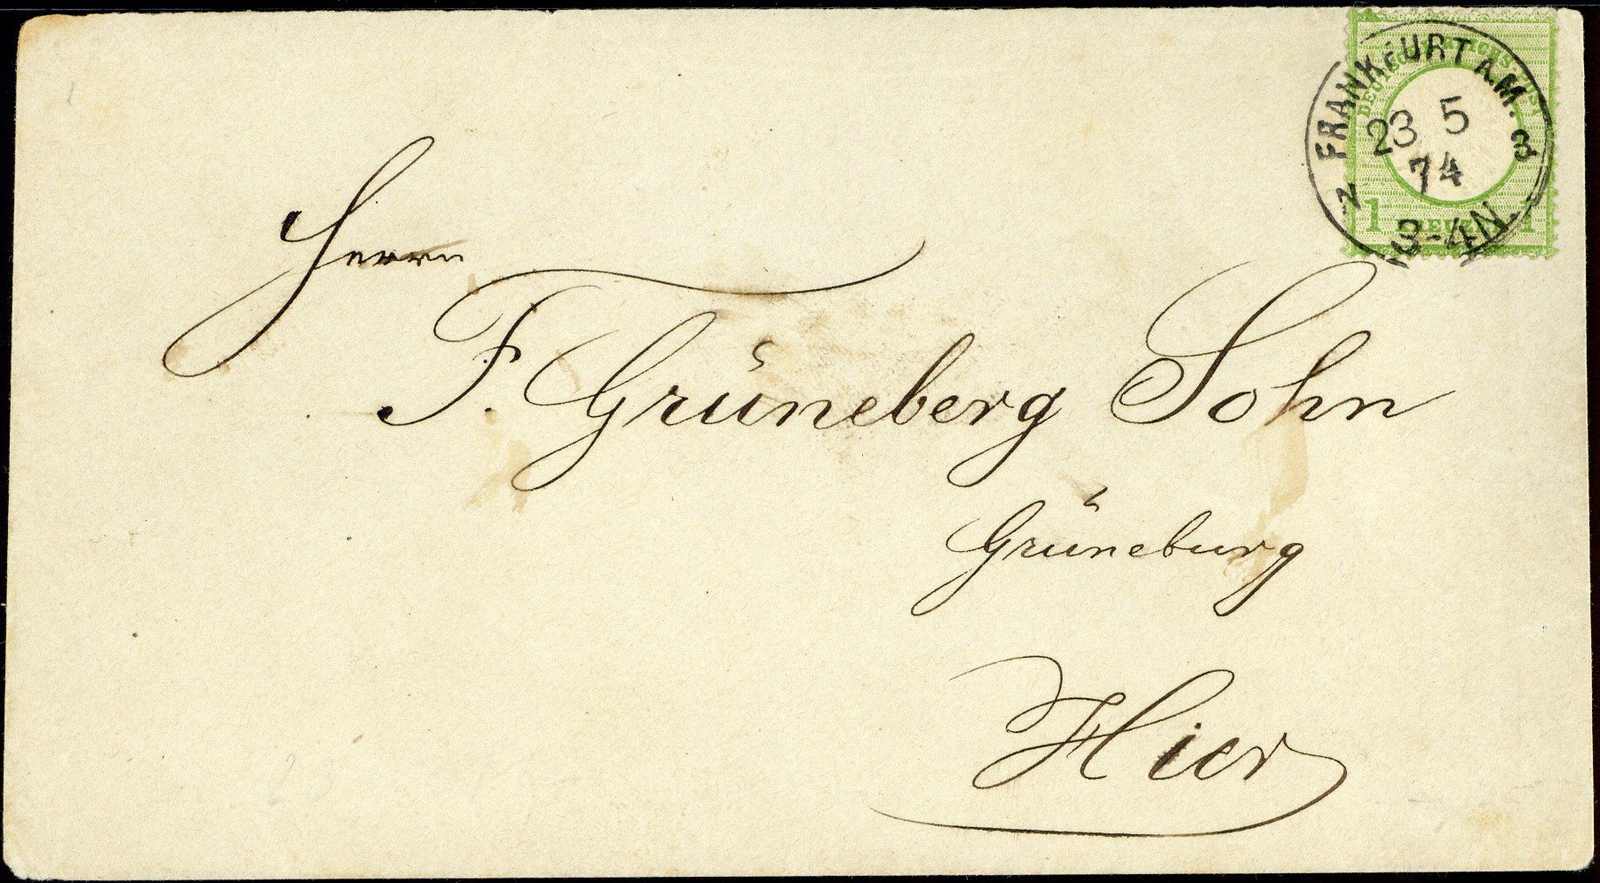 FRANKFURT A.M.
N 3
23 5
74
3-4N.
1
Herrn
F. Grüneberg Sohn
Grüneburg
Hier